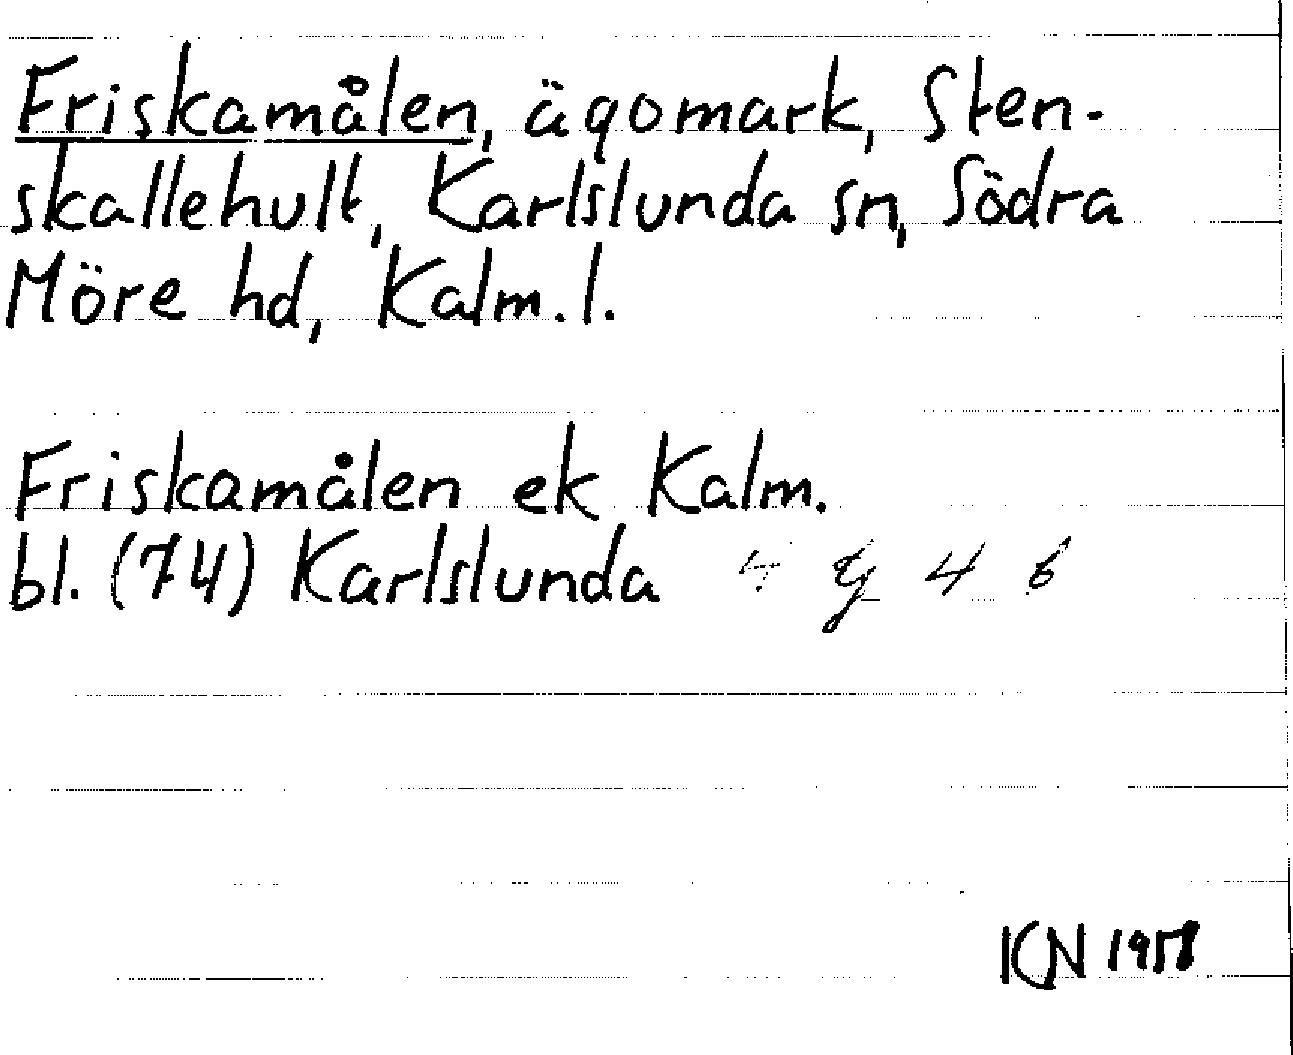 Friskamålen, ägomark, Sten-
skallehult, Karlslunda sn, Södra
Möre hd, Kalm. l.
Friskamålen ek Kalm.
bl. (74) Karlslunda 4 g 4 b
KN